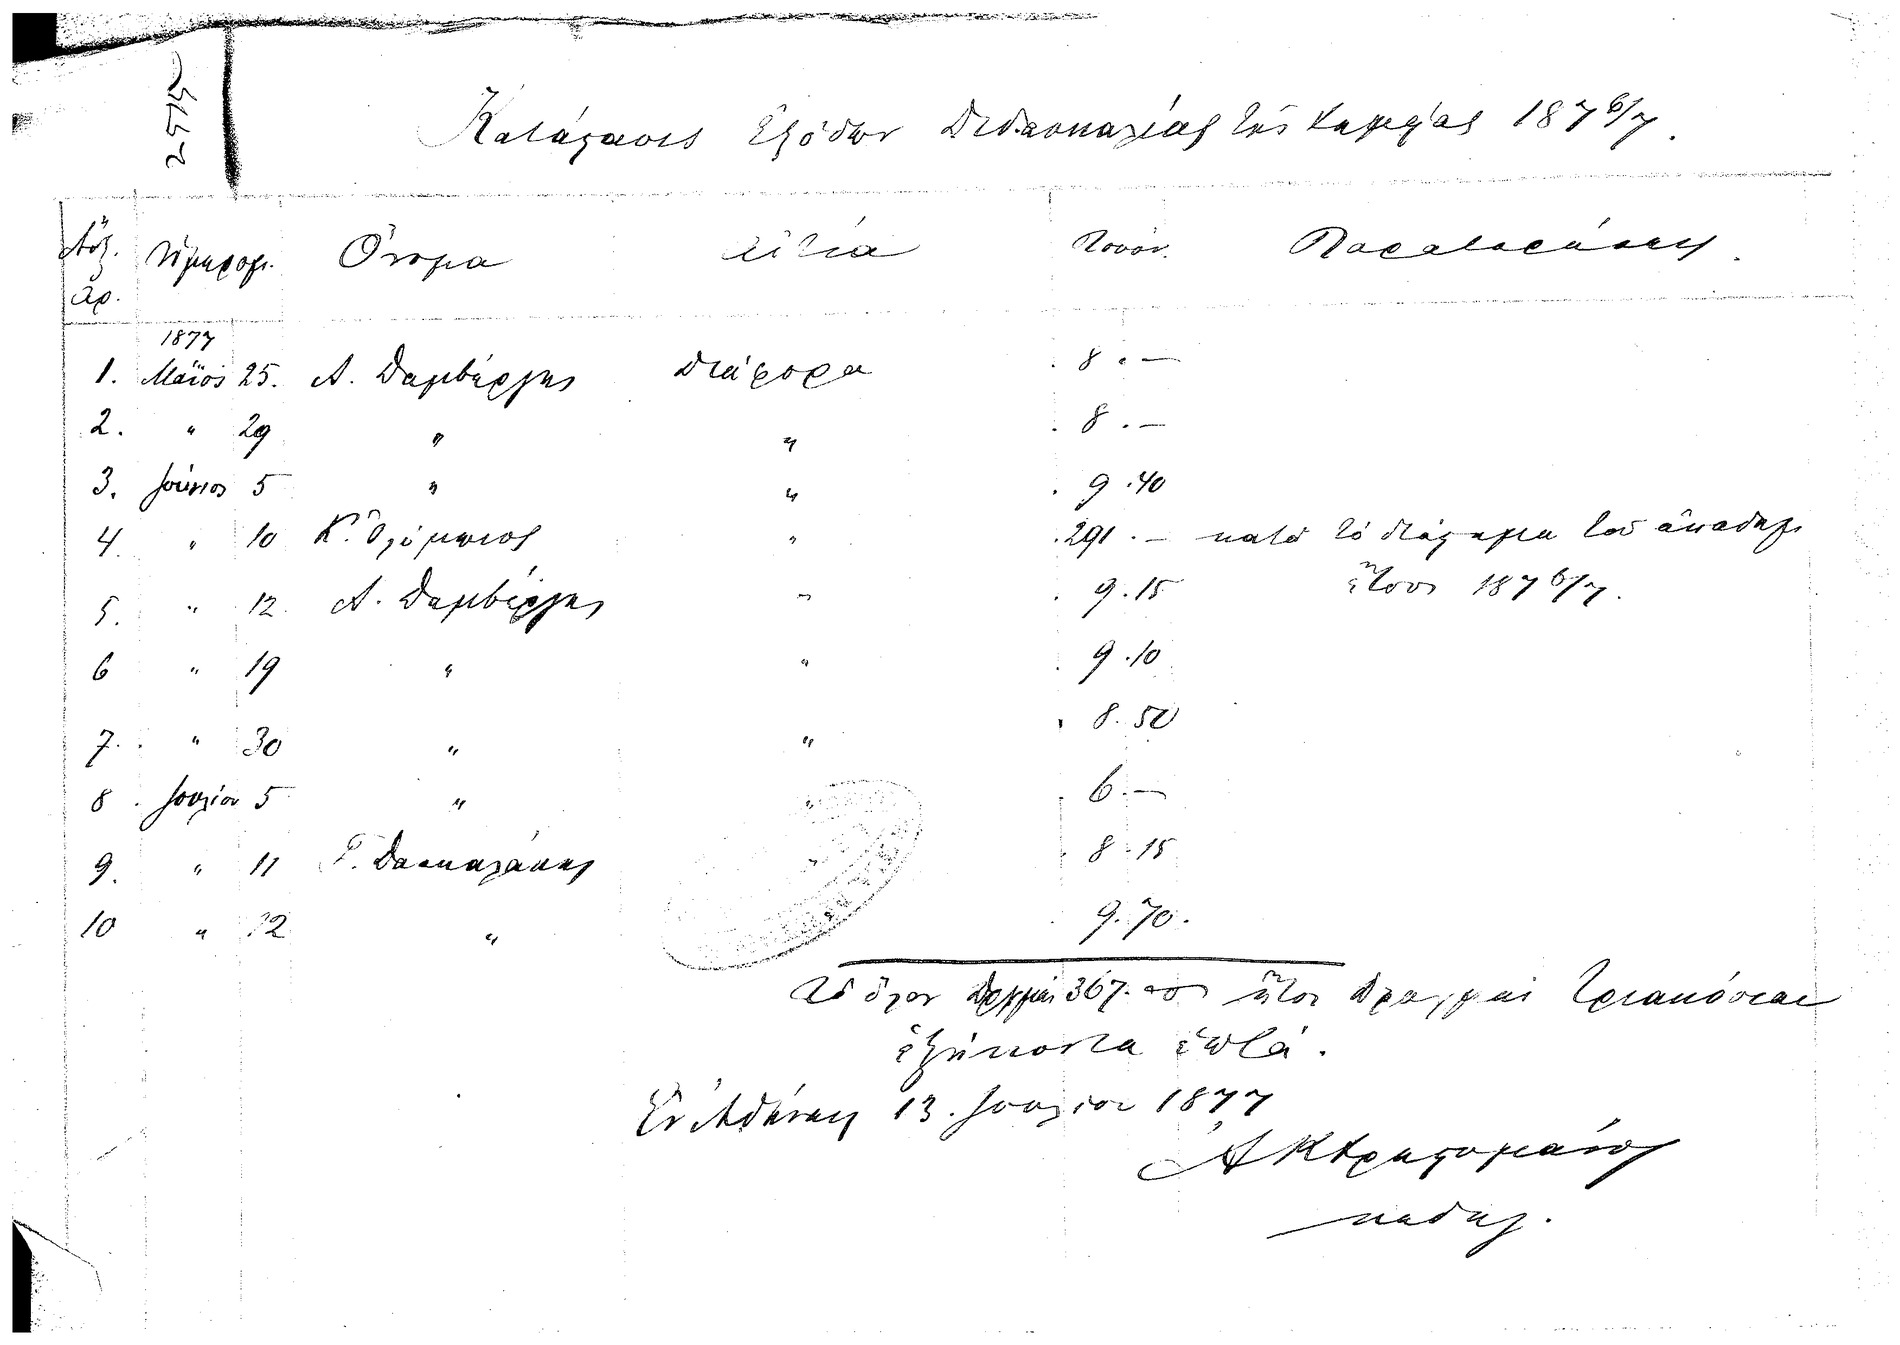 2974
Κατάστασις Ἐξόδων Διδασκαλίας τῆς Χημείας 187 6/7.
Αὔξ. Ἡμερομ. Ὄνομα Αἰτία Ποσόν. Παρατηρήσεις.
ἀρ.
1877
1. Μάϊος 25. Α. Δαμβέργης Διάφορα 8 . —
2. " 29 " " 8 . —
3. Ἰούνιος 5 " " 9 . 40
4. " 10 Κ. Ὀλύμπιος " 291 . — κατὰ τὸ διάστημα τοῦ ἀκαδημ.
5. " 12. Α. Δαμβέργης " 9 . 15 ἔτους 187 6/7.
6 " 19 " " 9 . 10
7. " 30 " " 8 . 50
8 . Ἰουλίου 5 " " 6 . —
9. " 11 Γ. Δασκαλάκης " 8 . 15
10 " 12 " 9 . 70 .
Τὸ ὅλον Δρχμαὶ 367. 00 ἤτοι Δραχμαὶ Τριακόσιαι
ἑξήκοντα ἑπτά.
Ἐν Ἀθήναις 13. Ἰουλίου 1877
Α Κ Χρηστομάνος
καθηγ.